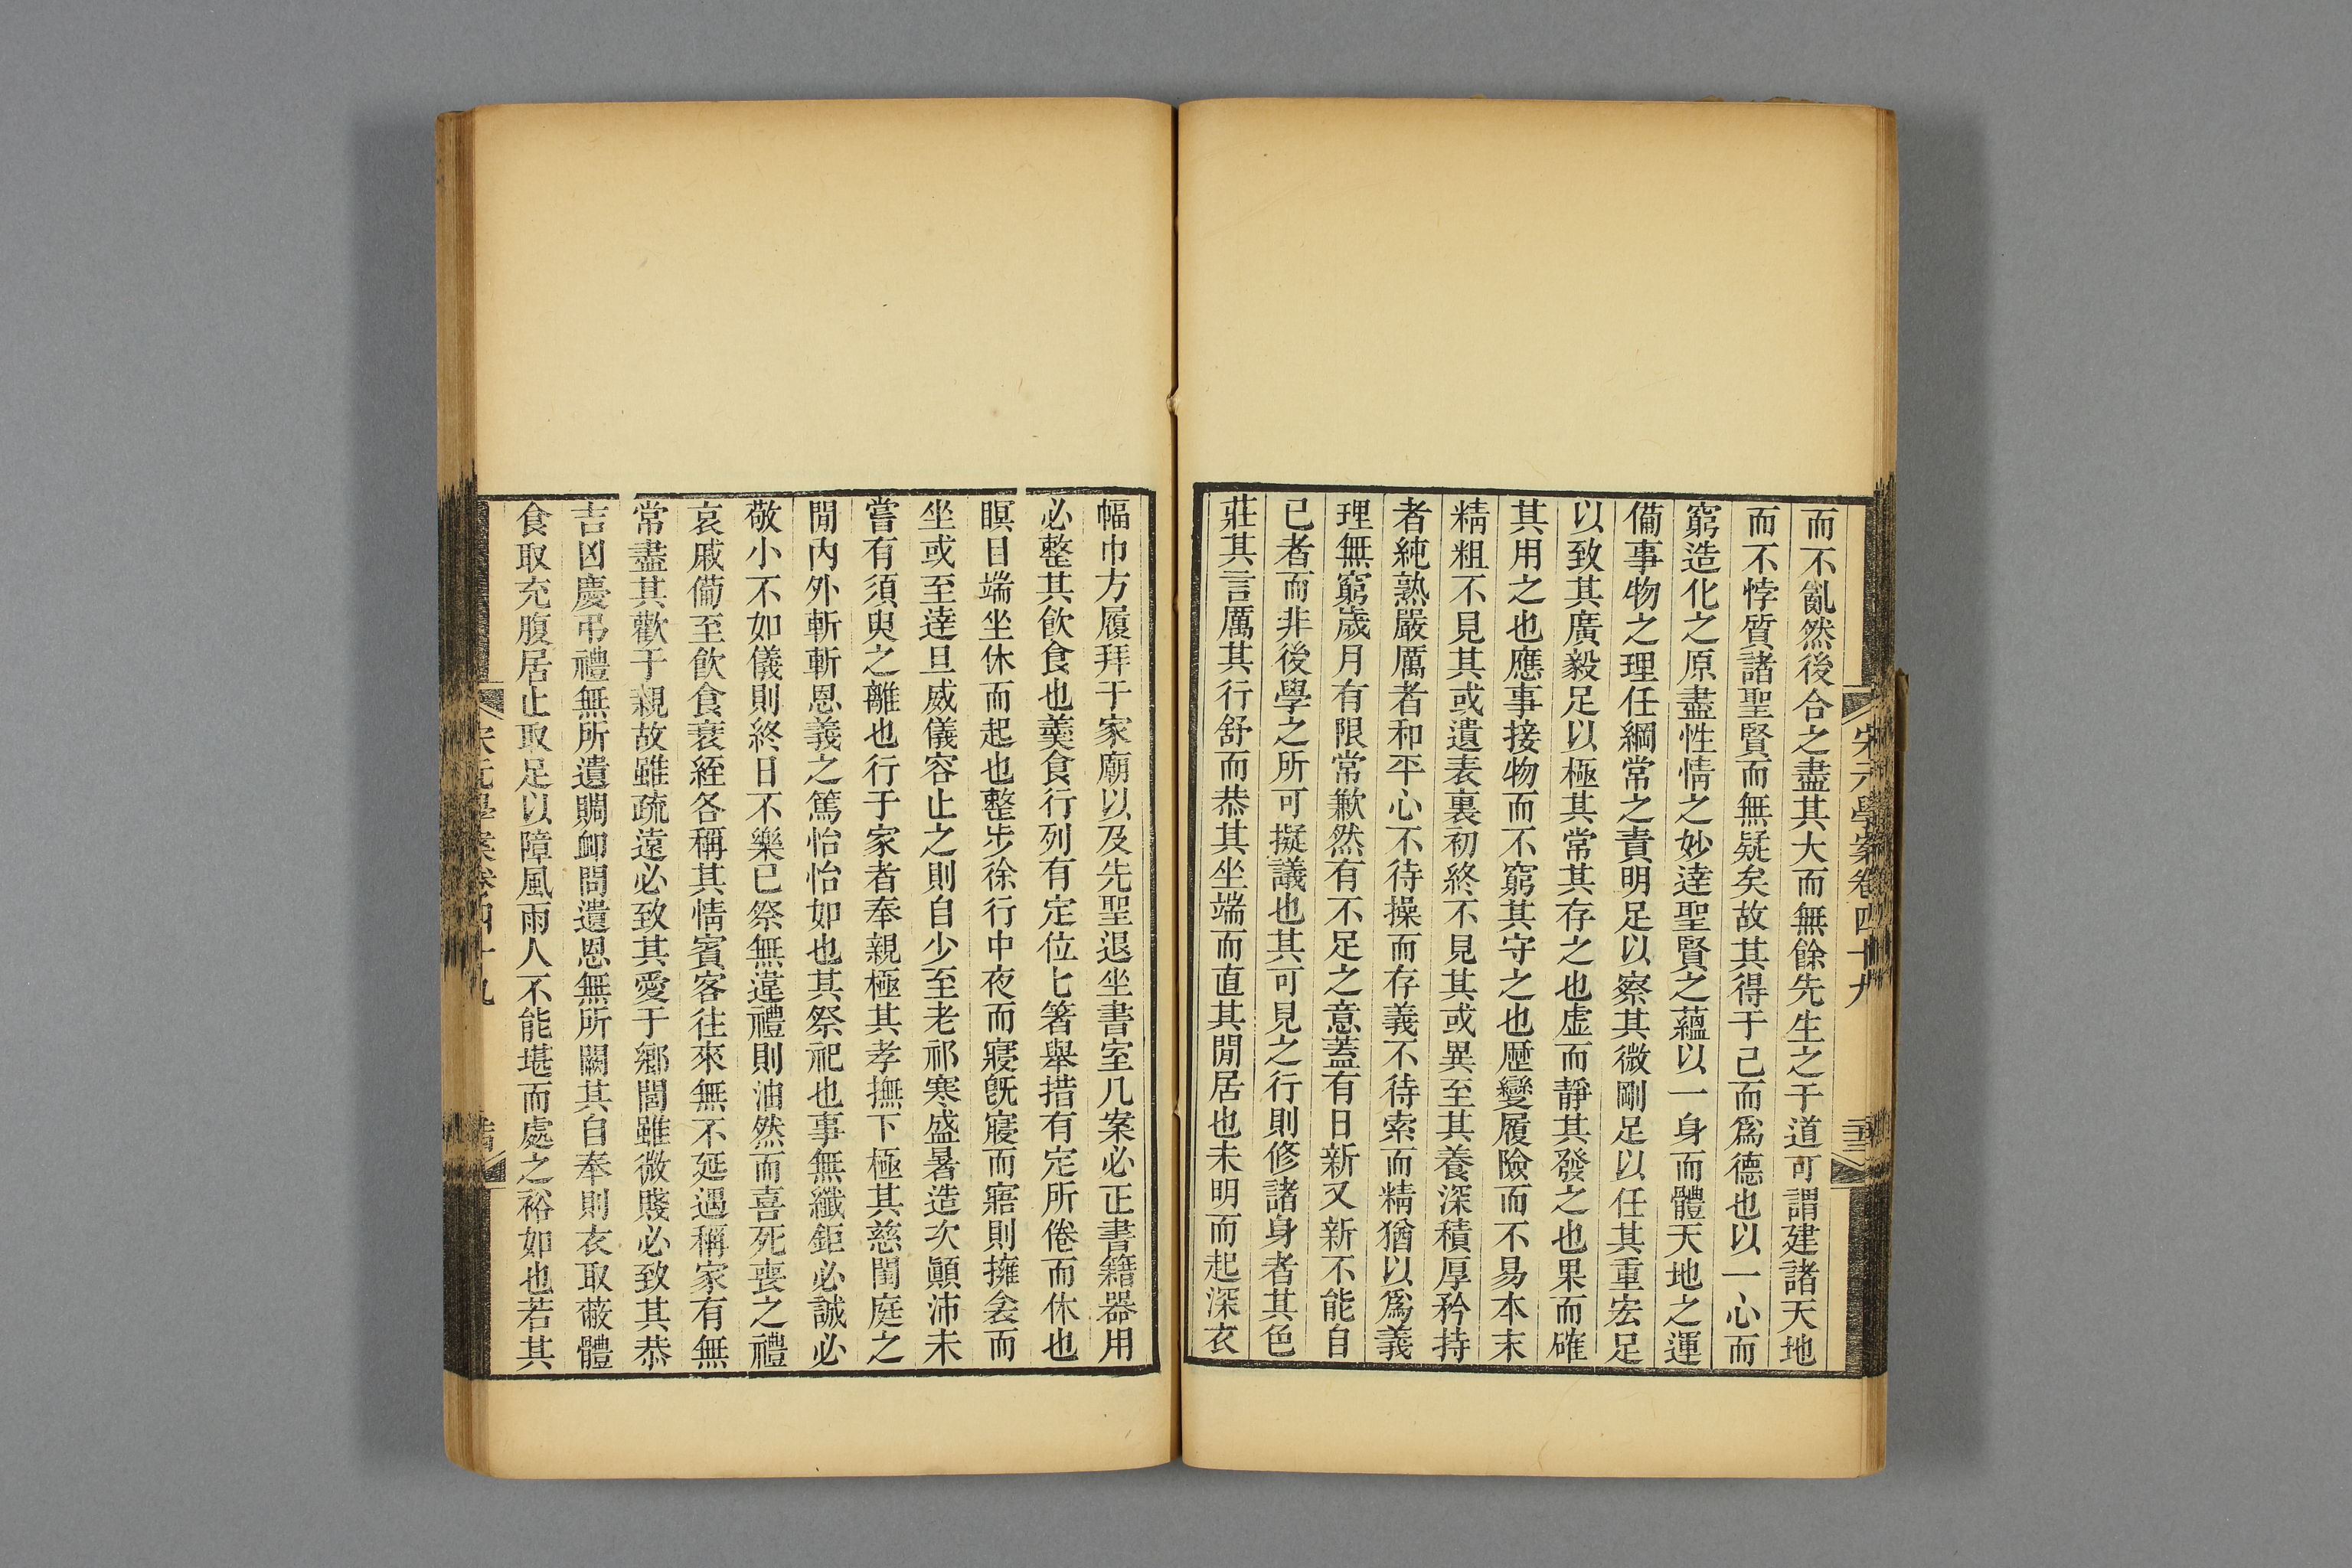 宋元學案卷四十九
而不亂然後合之盡其大而無餘先生之于道可謂建諸天地
而不悖質諸聖賢而無疑矣故其得于己而爲德也以一心而
窮造化之原盡性情之妙達聖賢之蘊以一身而體天地之運
備事物之理任綱常之責明足以察其微剛足以任其重宏足
以致其廣毅足以極其常其存之也虛而靜其發之也果而確
其用之也應事接物而不窮其守之也歷變履險而不易本末
精粗不見其或遺表裏初終不見其或異至其養深積厚矜持
者純熟嚴厲者和平心不待操而存義不待索而精猶以爲義
理無窮歲月有限常歉然有不足之意蓋有日新又新不能自
已者而非後學之所可擬議也其可見之行則修諸身者其色
莊其言厲其行舒而恭其坐端而直其閒居也未明而起深衣
幅巾方履拜于家廟以及先聖退坐書室几案必正書籍器用
必整其飲食也羹食行列有定位匕箸舉措有定所倦而休也
瞑目端坐休而起也整步徐行中夜而寢旣寢而寤則擁衾而
坐或至達旦威儀容止之則自少至老祁寒盛暑造次顚沛未
嘗有須臾之離也行于家者奉親極其孝撫下極其慈閨庭之
閒內外斬斬恩義之篤怡怡如也其祭祀也事無纖鉅必誠必
敬小不如儀則終日不樂已祭無違禮則油然而喜死喪之禮
哀戚備至飲食衰絰各稱其情賓客往來無不延遇稱家有無
常盡其歡于親故雖疏遠必致其愛于鄉閭雖微賤必致其恭
吉凶慶弔禮無所遺賙卹問遺恩無所闕其自奉則衣取蔽體
食取充腹居止取足以障風雨人不能堪而處之裕如也若其
宋元學案卷四十九